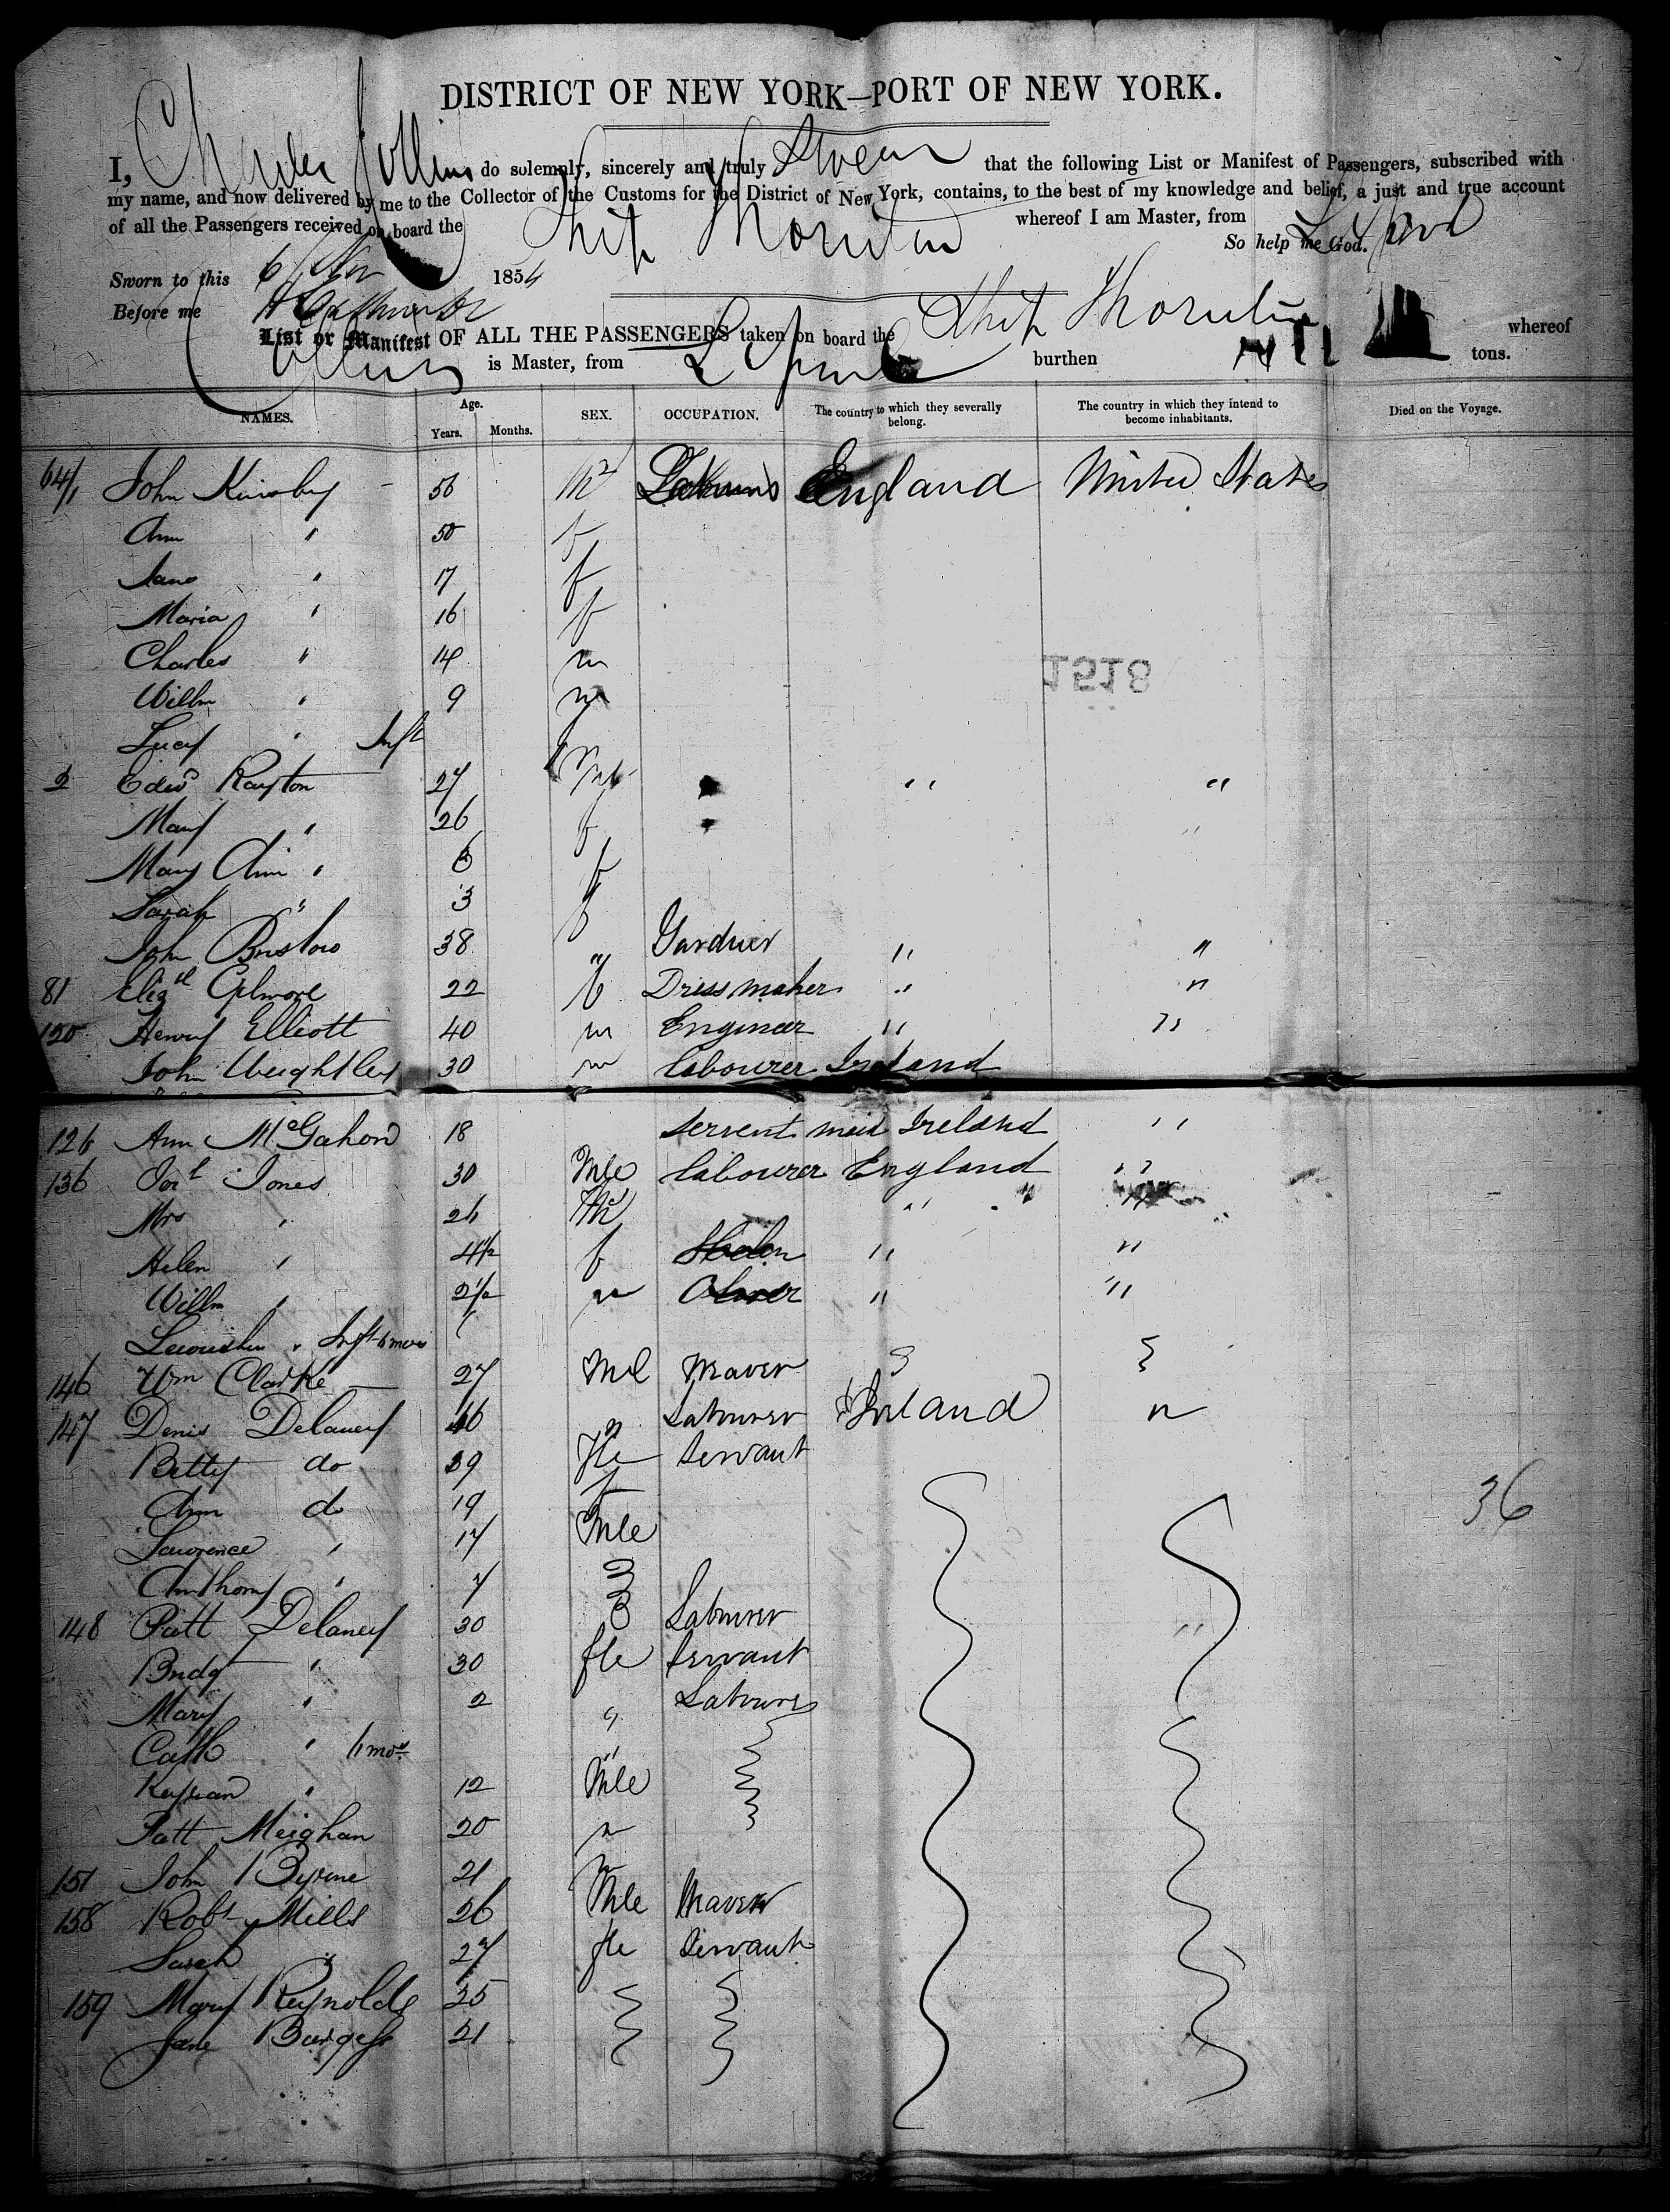 DISTRICT OF NEW YORK—PORT OF NEW YORK.
I, Charles Collins do solemnly, sincerely and truly Swear that the following List or Manifest of Passengers, subscribed with
my name, and now delivered by me to the Collector of the Customs for the District of New York, contains, to the best of my knowledge and belief, a just and true account
of all the Passengers received on board the Ship Thornton whereof I am Master, from L.pool
So help me God.
Sworn to this 6 1854
Before me
List or Manifest OF ALL THE PASSENGERS taken on board the Ship Thornton whereof
Collins is Master, from L.pool burthen tons.
NAMES. Age. Years. Months. SEX. OCCUPATION. The country to which they severally belong. The country in which they intend to become inhabitants. Died on the Voyage.
64/1 John 56 m England United States
Ann " 50 f
Jane " 17 f
Maria " 16 f
Charles " 14 m
Willm " 9 m
Lucy " Inft
1518
2 Edwd Rayton 27 Mle " "
Mary " 26 f "
Mary Ann " 6 f
Sarah " 3 f
John Bristow 38 " Gardner " "
81 Elizth Gilmore 22 f Dress maker " "
120 Henry Elliott 40 m Engineer " "
John 30 m labourer Ireland
126 Ann McGahon 18 Servent maid Ireland "
136 Jones 30 Mle labourer England "
Mrs " 26 " "
Helen " 4½ f " "
Willm " 2½ m " "
" Inft 6 mos
146 Wm Clarke 27 Mle Weaver
147 Denis Delaney 46 " Labourer Ireland "
Betty do 39 fle Servant
Ann do 19 f
Lawrence " 17 Mle
Anthony " 7
148 Patt Delaney 30 Labourer
Bridgt " 30 fle Servant
Mary " 2 " Labourer
Cath " 6 mos "
" 12 Mle
Patt Meighan 20 "
151 John Byrne 21 "
158 Robt Mills 26 Mle Weaver
Sarah " 27 fle Servant
159 Mary Reynolds 25
Jane Burgess 21
36